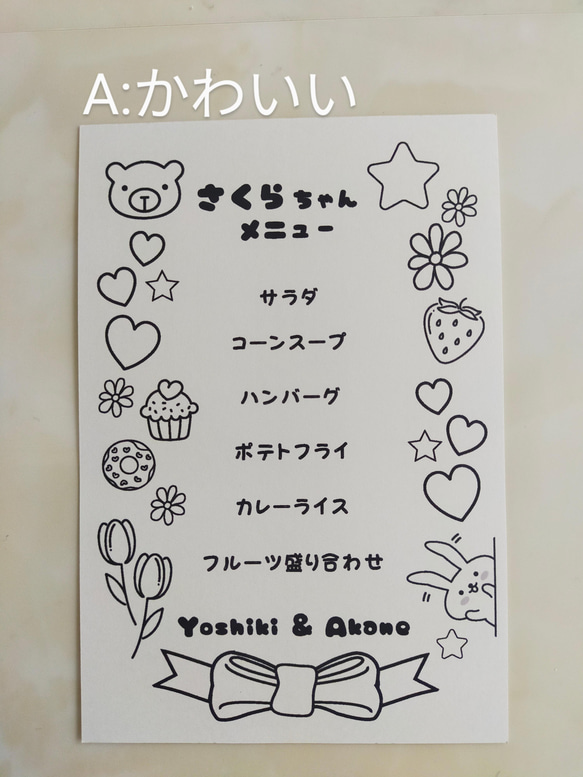 A:かわいい
さくらちゃん
メニュー
サラダ
コーンスープ
ハンバーグ
ポテトフライ
カレーライス
フルーツ盛り合わせ
Yoshiki & Akane